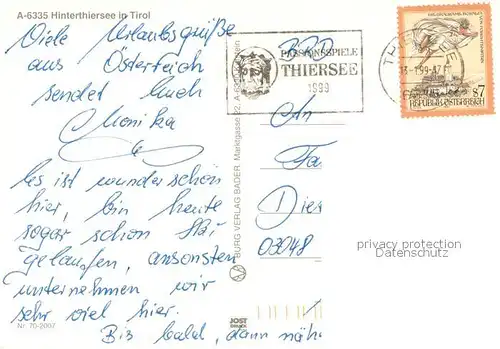 A-6335 Hinterthiersee in Tirol
Viele Urlaubsgrüße
aus Österreich
sendet Euch
Monika
Es ist wunderschön
hier, bin heute
sogar schon Ski
gelaufen, ansonsten
unternehmen wir
sehr viel hier.
Bis bald, dann näh
Nr. 70-2007
BURG VERLAG BADER, Marktgasse 22, A-6
JOST
BRD
PASSIONSSPIELE
THIERSEE
1999
An
Fa
Dies
03048
privacy protection
Datenschutz
TH
99
s7
REPUBLIK ÖSTERREICH